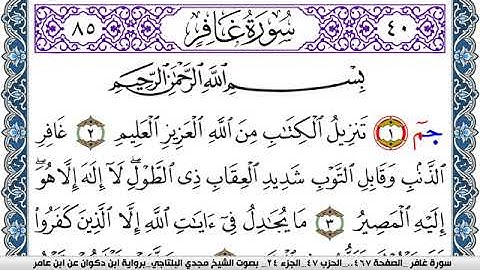 ٤٠ سُورَةُ غَافِرٍ ٨٥
بِسْمِ اللَّهِ الرَّحْمَٰنِ الرَّحِيمِ
حمٓ ١ تَنزِيلُ الْكِتَٰبِ مِنَ اللَّهِ الْعَزِيزِ الْعَلِيمِ ٢ غَافِرِ
الذَّنۢبِ وَقَابِلِ التَّوْبِ شَدِيدِ الْعِقَابِ ذِى الطَّوْلِۖ لَآ إِلَٰهَ إِلَّا هُوَۖ
إِلَيْهِ الْمَصِيرُ ٣ مَا يُجَٰدِلُ فِىٓ ءَايَٰتِ اللَّهِ إِلَّا الَّذِينَ كَفَرُوا
سورة غافر _الصفحة ٤٦٧_ الحزب ٤٧_الجزء ٢٤_ بصوت الشيخ مجدي البلتاجي_برواية ابن دكوان عن ابن عامر